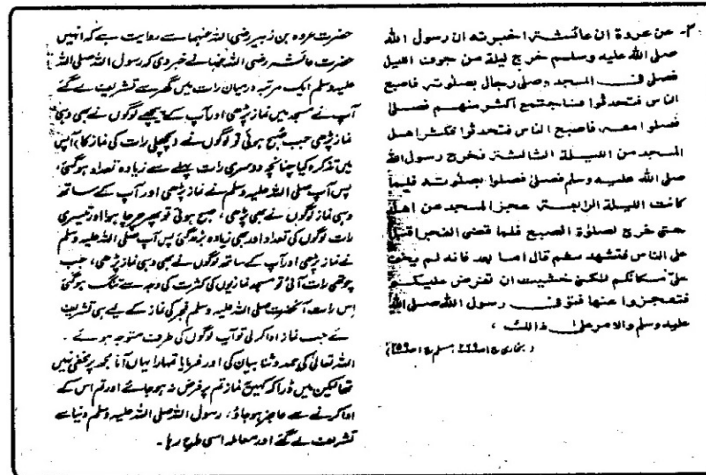 ۲- عن عروة ان عائشة اخبرته ان رسول الله
صلى الله عليه وسلم خرج ليلة من جوف الليل
فصلى فى المسجد وصلى رجال بصلوته فاصبح
الناس فتحدثوا فاجتمع اكثر منهم فصلى
فصلوا معه فاصبح الناس فتحدثوا فكثر اهل
المسجد من الليلة الثالثة فخرج رسول الله
صلى الله عليه وسلم فصلى فصلوا بصلوته فلما
كانت الليلة الرابعة عجز المسجد عن اهله
حتى خرج لصلوة الصبح فلما قضى الفجر اقبل
على الناس فتشهد ثم قال اما بعد فانه لم يخف
على مكانكم لكنى خشيت ان تفرض عليكم
فتعجزوا عنها فتوفى رسول الله صلى الله
عليه وسلم والامر على ذالك،
(بخاری ج۱ ص۲۶۹؛ مسلم ج۱ ص۲۵۹)
حضرت عروہ بن زبیر رضی اللہ عنہما سے روایت ہے کہ انہیں
حضرت عائشہ رضی اللہ عنہا نے خبر دی کہ رسول اللہ صلی اللہ
علیہ وسلم ایک مرتبہ درمیان رات میں گھر سے تشریف لے گئے
آپ نے مسجد میں نماز پڑھی اور آپ کے پیچھے لوگوں نے بھی وہی
نماز پڑھی جب صبح ہوئی تو لوگوں نے (پچھلی رات کی نماز کا) آپس
میں تذکرہ کیا چنانچہ دوسری رات پہلے سے زیادہ تعداد ہو گئی،
پس آپ صلی اللہ علیہ وسلم نے نماز پڑھی اور آپ کے ساتھ
وہی نماز لوگوں نے بھی پڑھی، صبح ہوئی تو پھر چرچا ہوا اور تیسری
رات لوگوں کی تعداد اور بھی زیادہ بڑھ گئی پس آپ صلی اللہ علیہ وسلم
نے نماز پڑھی اور آپ کے ساتھ لوگوں نے بھی وہی نماز پڑھی، جب
چوتھی رات آئی تو مسجد نمازیوں کی کثرت کی وجہ سے تنگ ہو گئی
اس رات آنحضرت صلی اللہ علیہ وسلم فجر کی نماز کے لیے ہی تشریف
لے جب نماز ادا کر لی تو آپ لوگوں کی طرف متوجہ ہوئے۔
اللہ تعالٰی کی حمد و ثنا بیان کی اور فرمایا تمہارا یہاں آنا مجھ پر مخفی نہیں
تھا لیکن میں ڈرا کہ کہیں یہ نماز تم پر فرض نہ ہو جائے اور تم اس کے
ادا کرنے سے عاجز ہو جاؤ، رسول اللہ صلی اللہ علیہ وسلم دنیا سے
تشریف لے گئے اور معاملہ اسی طرح رہا۔